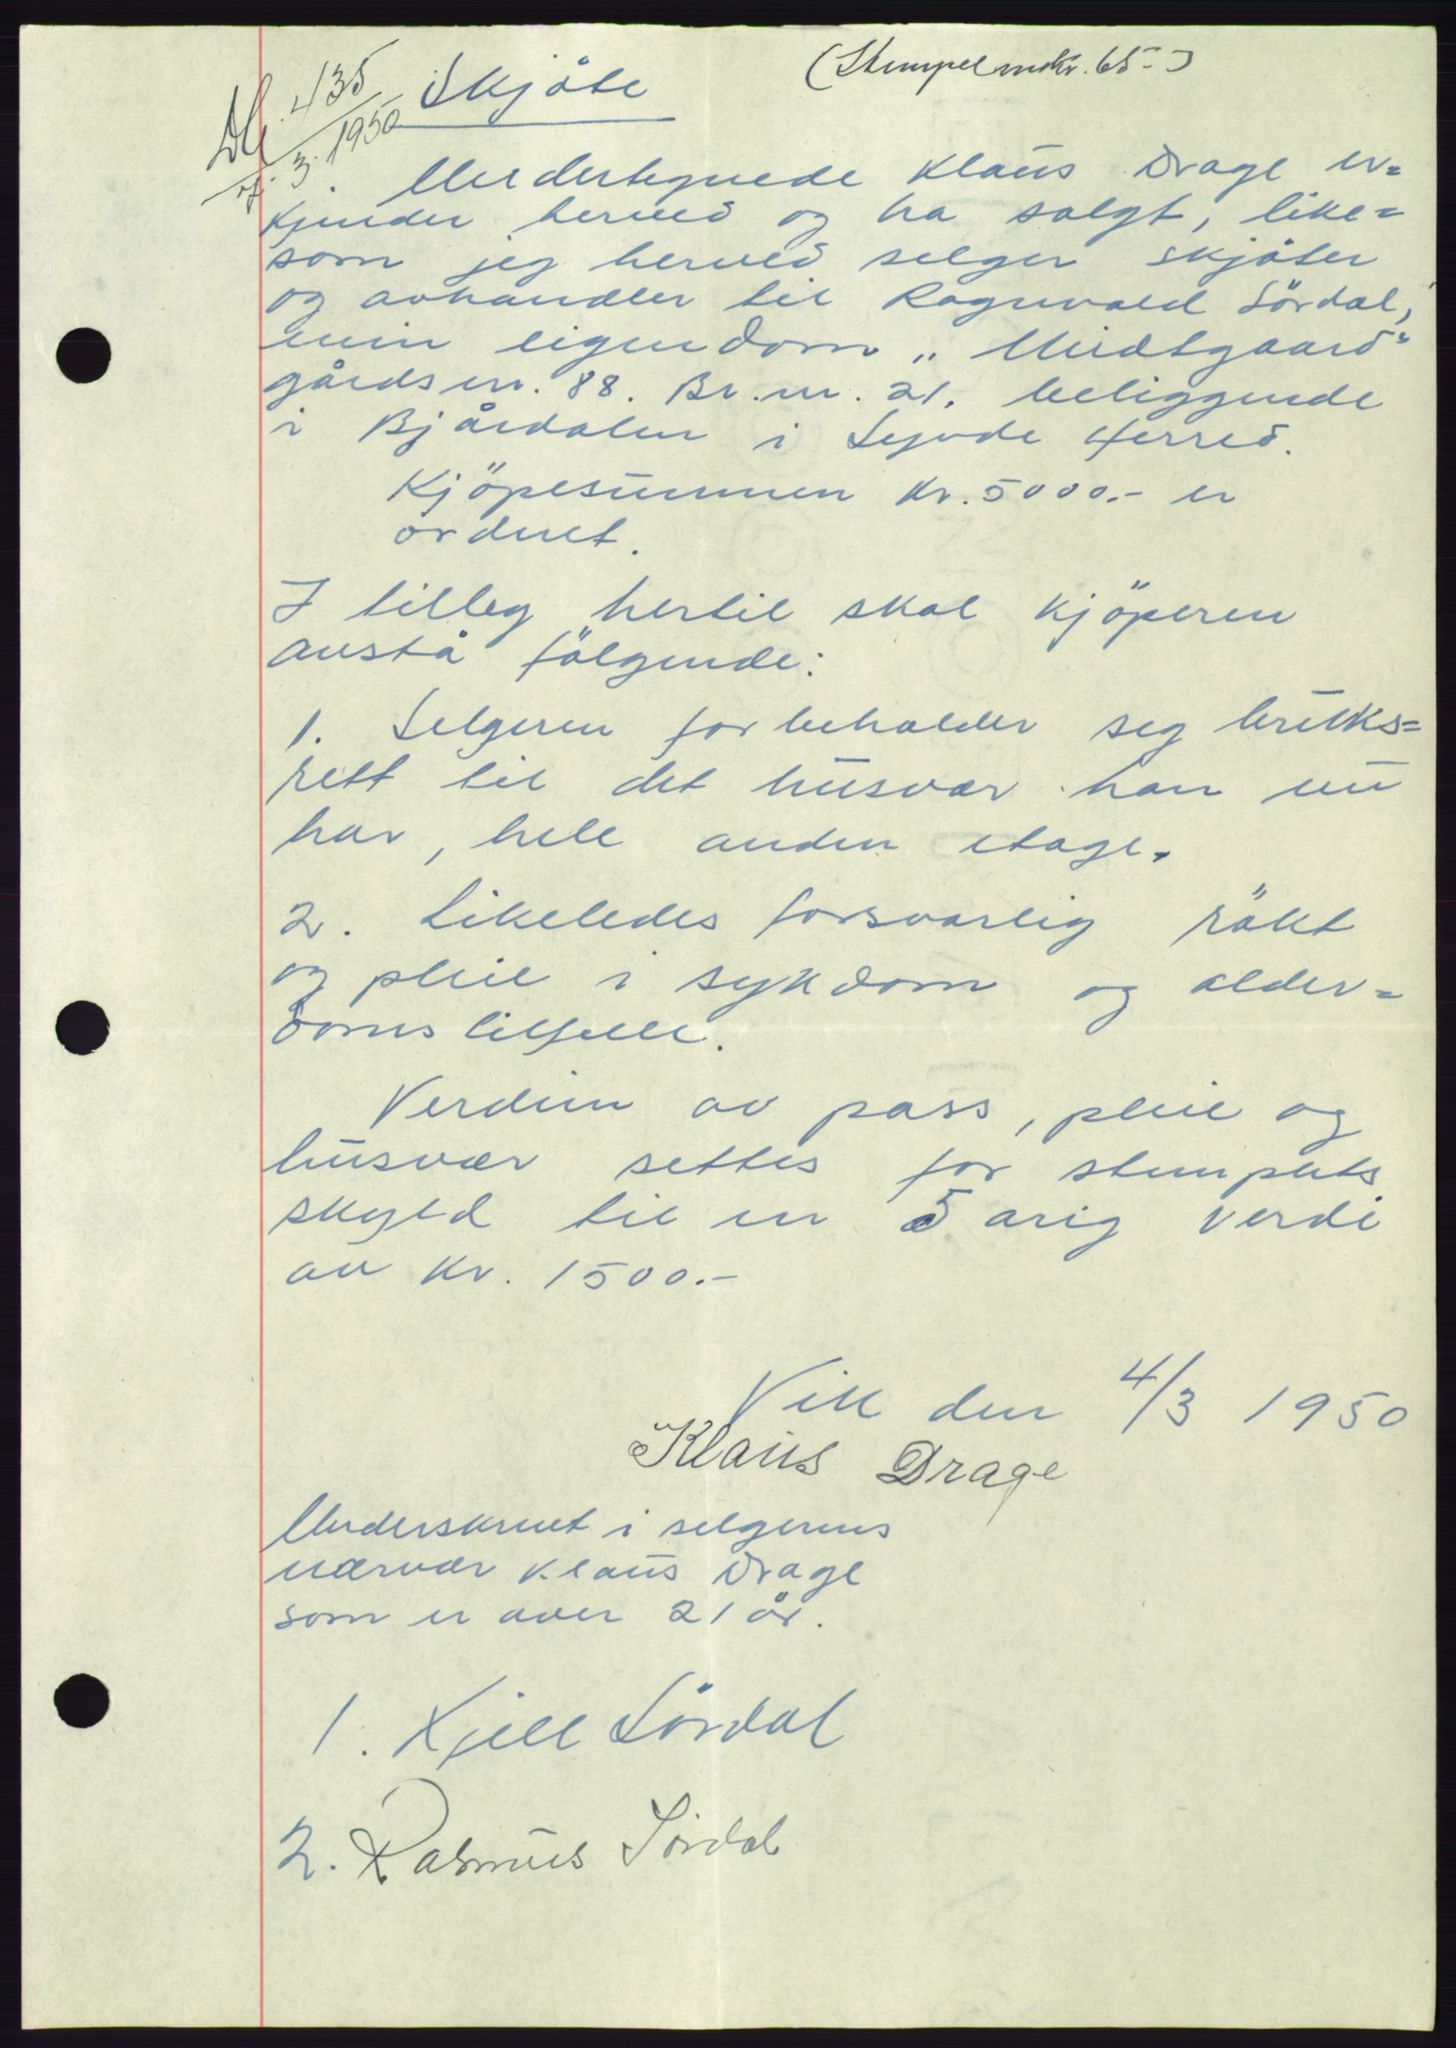 Skjöte
(Stempel m. kr. 65.-)
435
3. 1950
Undertegnede Klaus Drage er=
kjender herved og ha solgt, like=
som jeg herved selger skjöter
og avhandler til Ragnvald Sördal,
min eigendom "Midtgaard"
gårdsnr. 88. Br.nr. 21. beliggende
i Bjårdalen i Syvde Herred.
Kjöpesummen Kr. 5000.- er
ordnet.
I tilleg hertil skal kjöperen
anstå fölgende:
1. Selgeren forbeholder seg bruks=
rett til det husvær han nu
har, hele anden etage.
2. Likeledes forsvarlig rökt
og pleie i sykdom og alder=
doms tilfelle.
Verdien av pass, pleie og
husvær settes for stemplets
skyld til en 5 årig verdi
av Kr. 1500.-
Vik den 4/3 1950
Klaus Drage
Underskrevet i selgerens
nærvær Klaus Drage
som er over 21 år.
1. Kjell Sördal
2. Rasmus Sördal